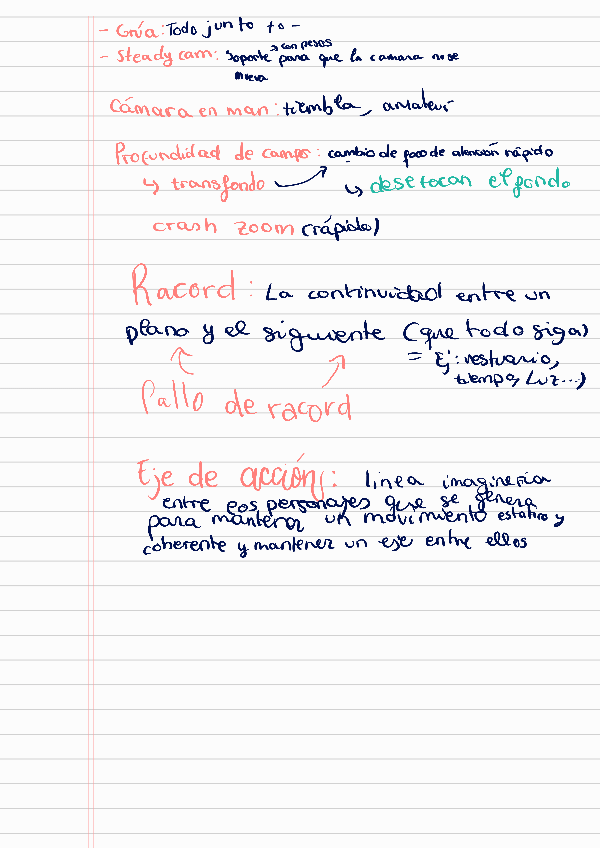 - Grúa: Todo junto to -
→ con pesos
- Steady cam: soporte para que la camara no se
mueva
Cámara en man: tiembla, amateur
Profundidad de campo: cambio de foco de atención rápido
↳ transfondo ↳ desefocan el fondo
crash zoom (rápido)
Racord: La continuidad entre un
plano y el siguiente (que todo siga)
= Ej: vestuario,
tiempo, luz...)
Fallo de racord
Eje de acción: linea imagineria
entre eos personajes que se genera
para mantener un movimiento estativo y
coherente y mantener un eje entre ellos